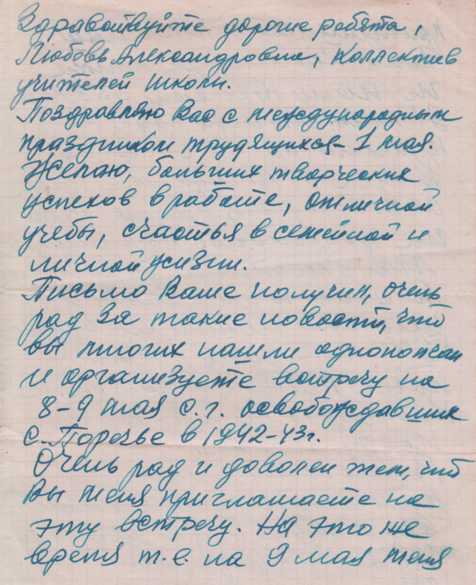 Здравствуйте дорогие ребята,
Любовь Александровна, коллектив
учителей школы.
Поздравляю Вас с международным
праздником трудящихся - 1 мая.
Желаю, больших творческих
успехов в работе, отличной
учебы, счастья в семейной и
личной жизни.
Письмо Ваше получил, очень
рад за такие новости, что
вы многих нашли однополчан
и организуете встречу на
8-9 мая с.г. освобождавших
с. Поречье в 1942-43г.
Очень рад и доволен тем, что
вы меня приглашаете на
эту встречу. На это же
время т.е. на 9 мая меня